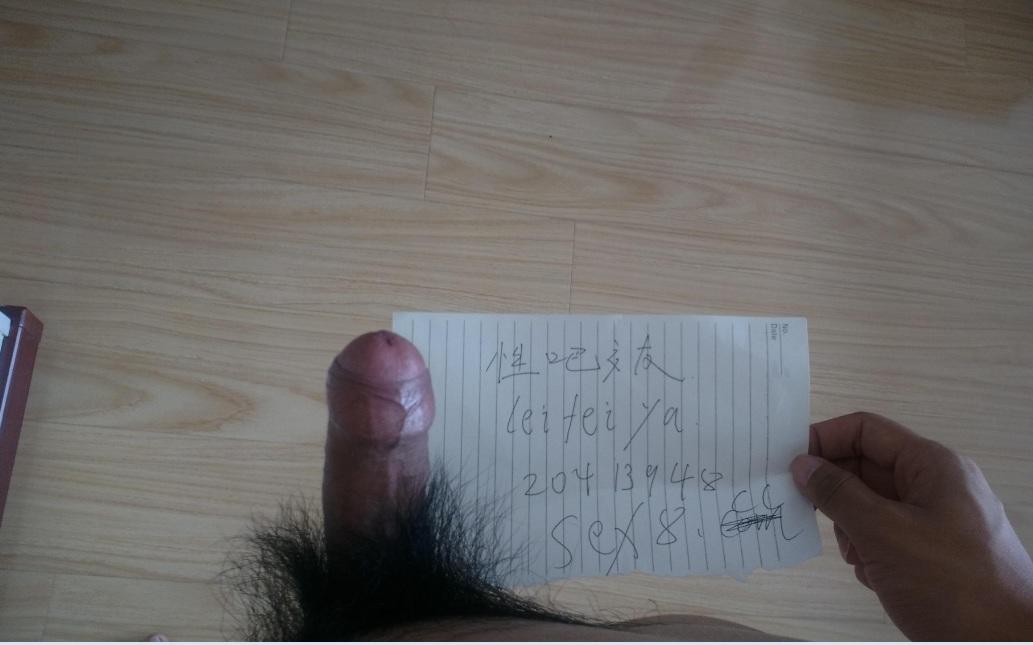 No.
Date
性吧交友
leifeiya
20413948
sex8.cc